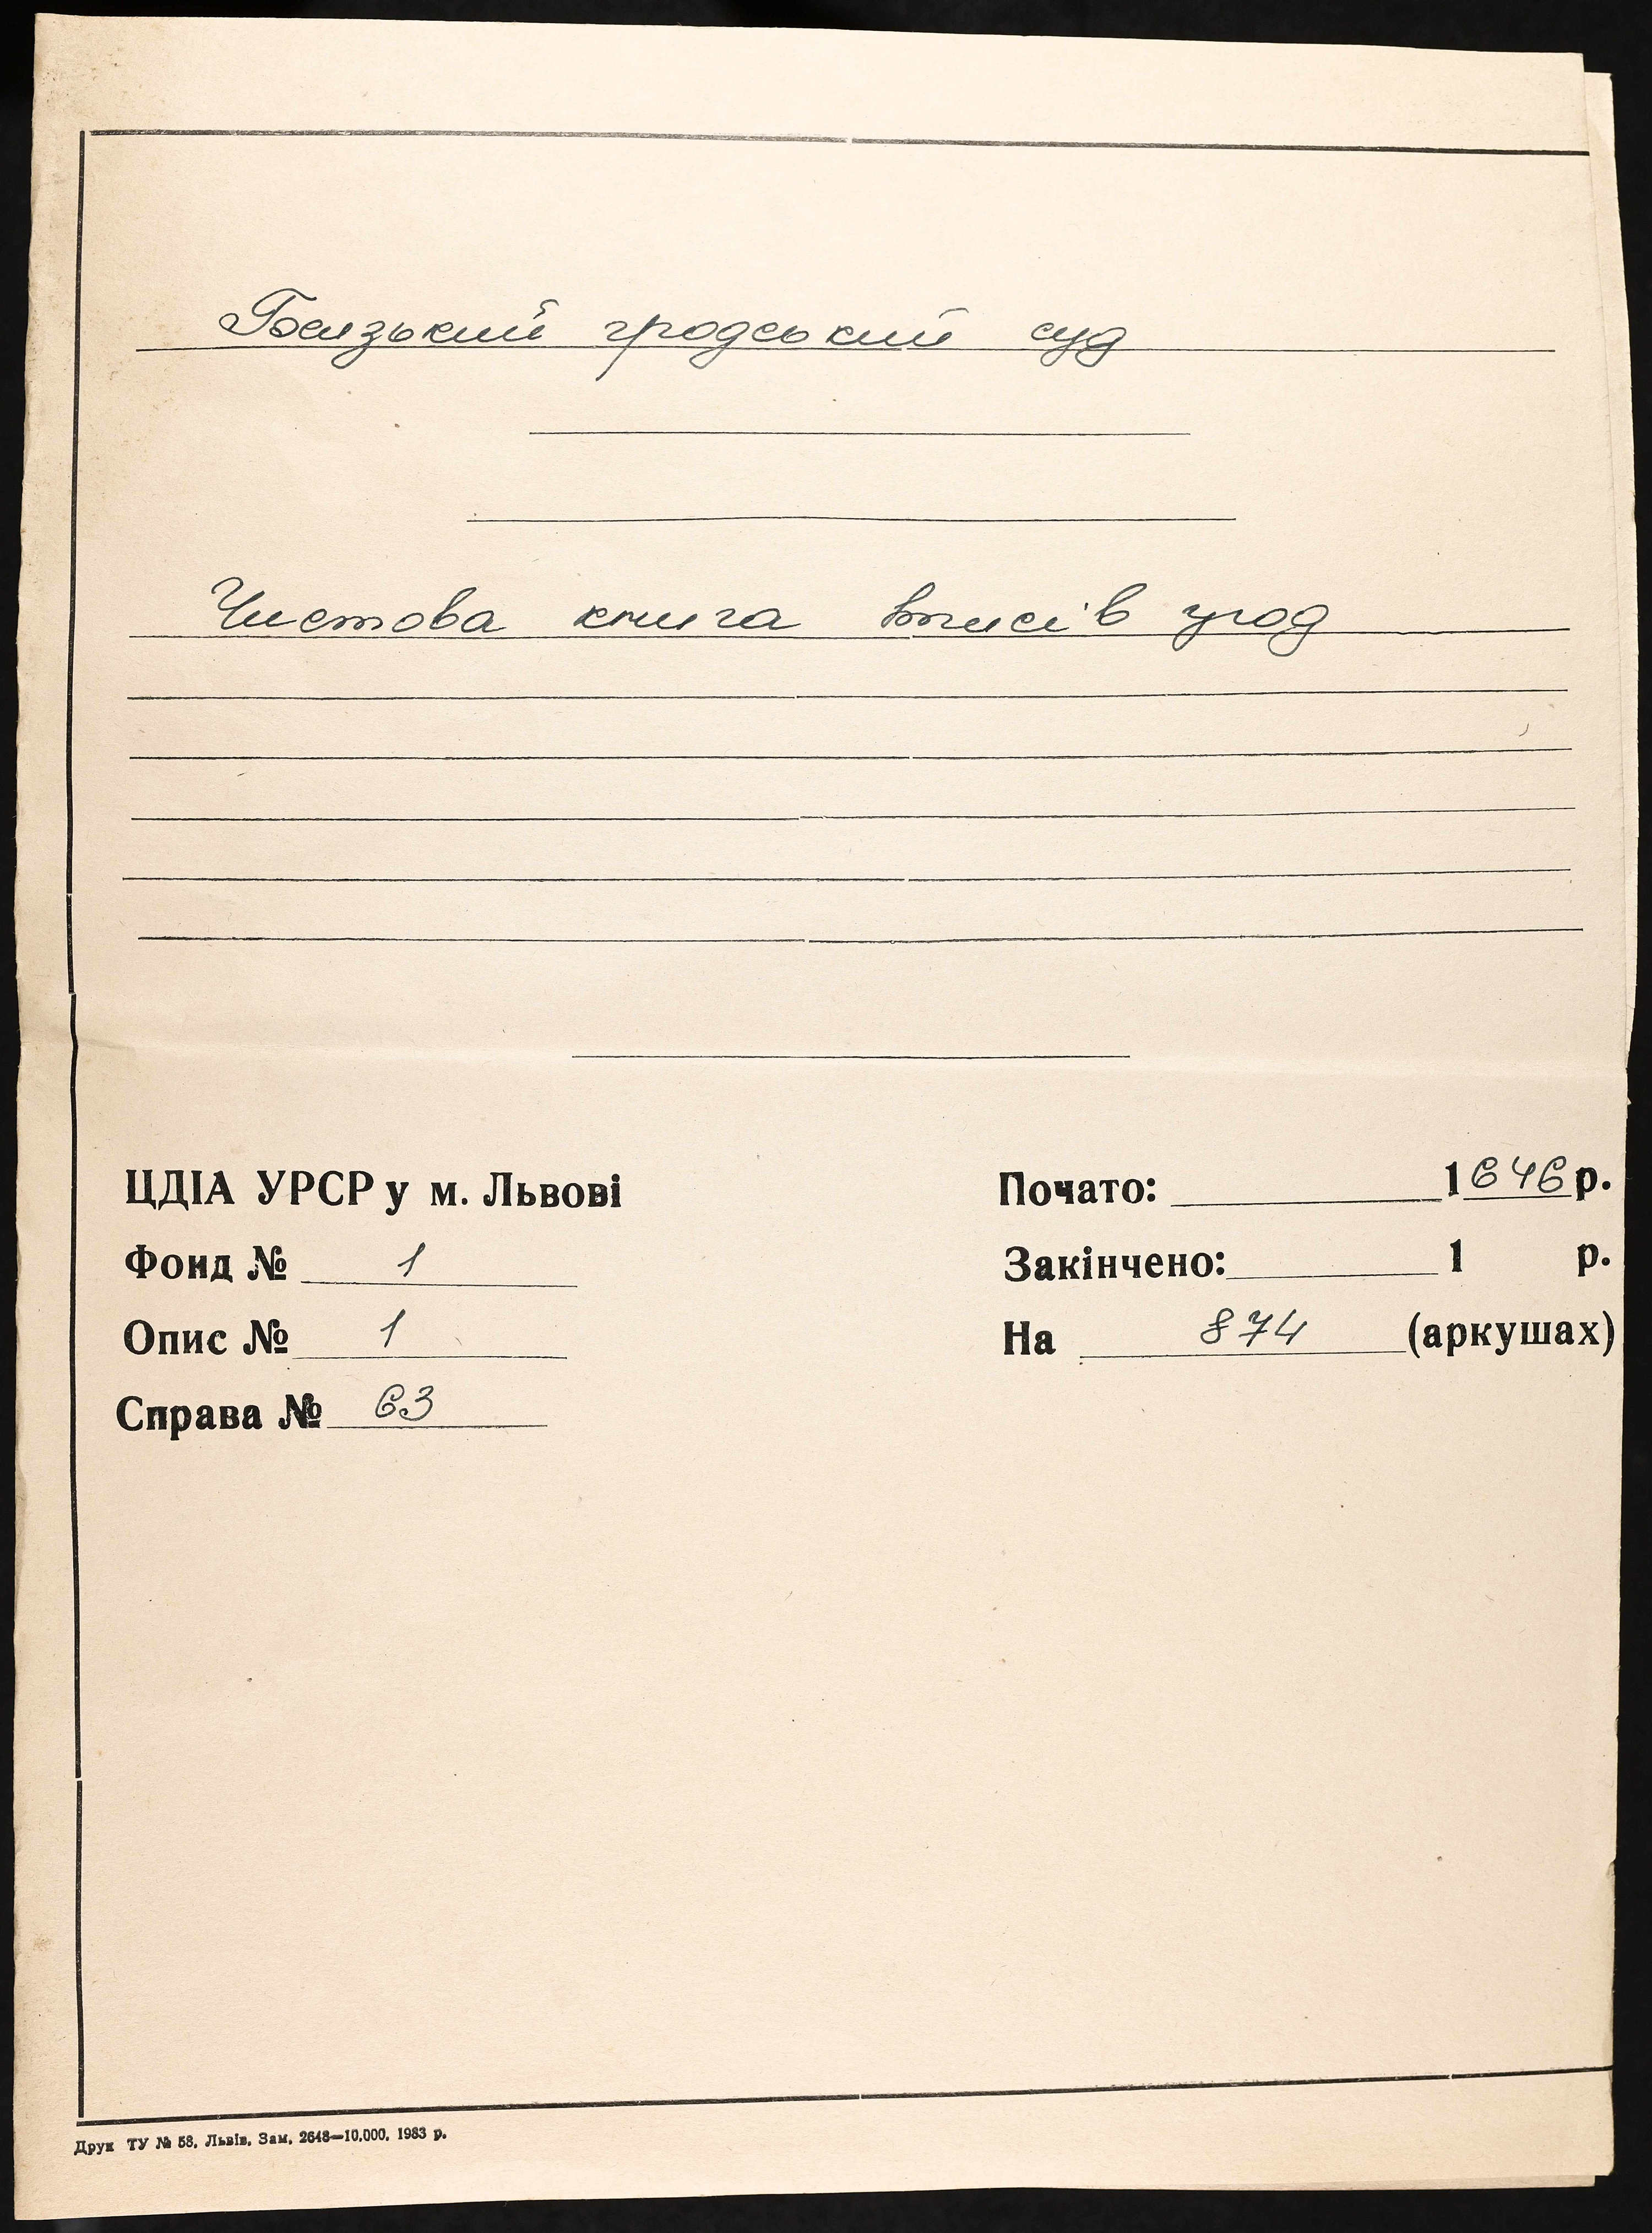 Белзький гродський суд
Чистова книга вписів угод
ЦДІА УРСР у м. Львові
Почато: 1646 р.
Фонд № 1
Закінчено: 1 р.
Опис № 1
На 874 (аркушах)
Справа № 63
Друк ТУ № 58, Львів, Зам. 2648—10.000. 1983 р.